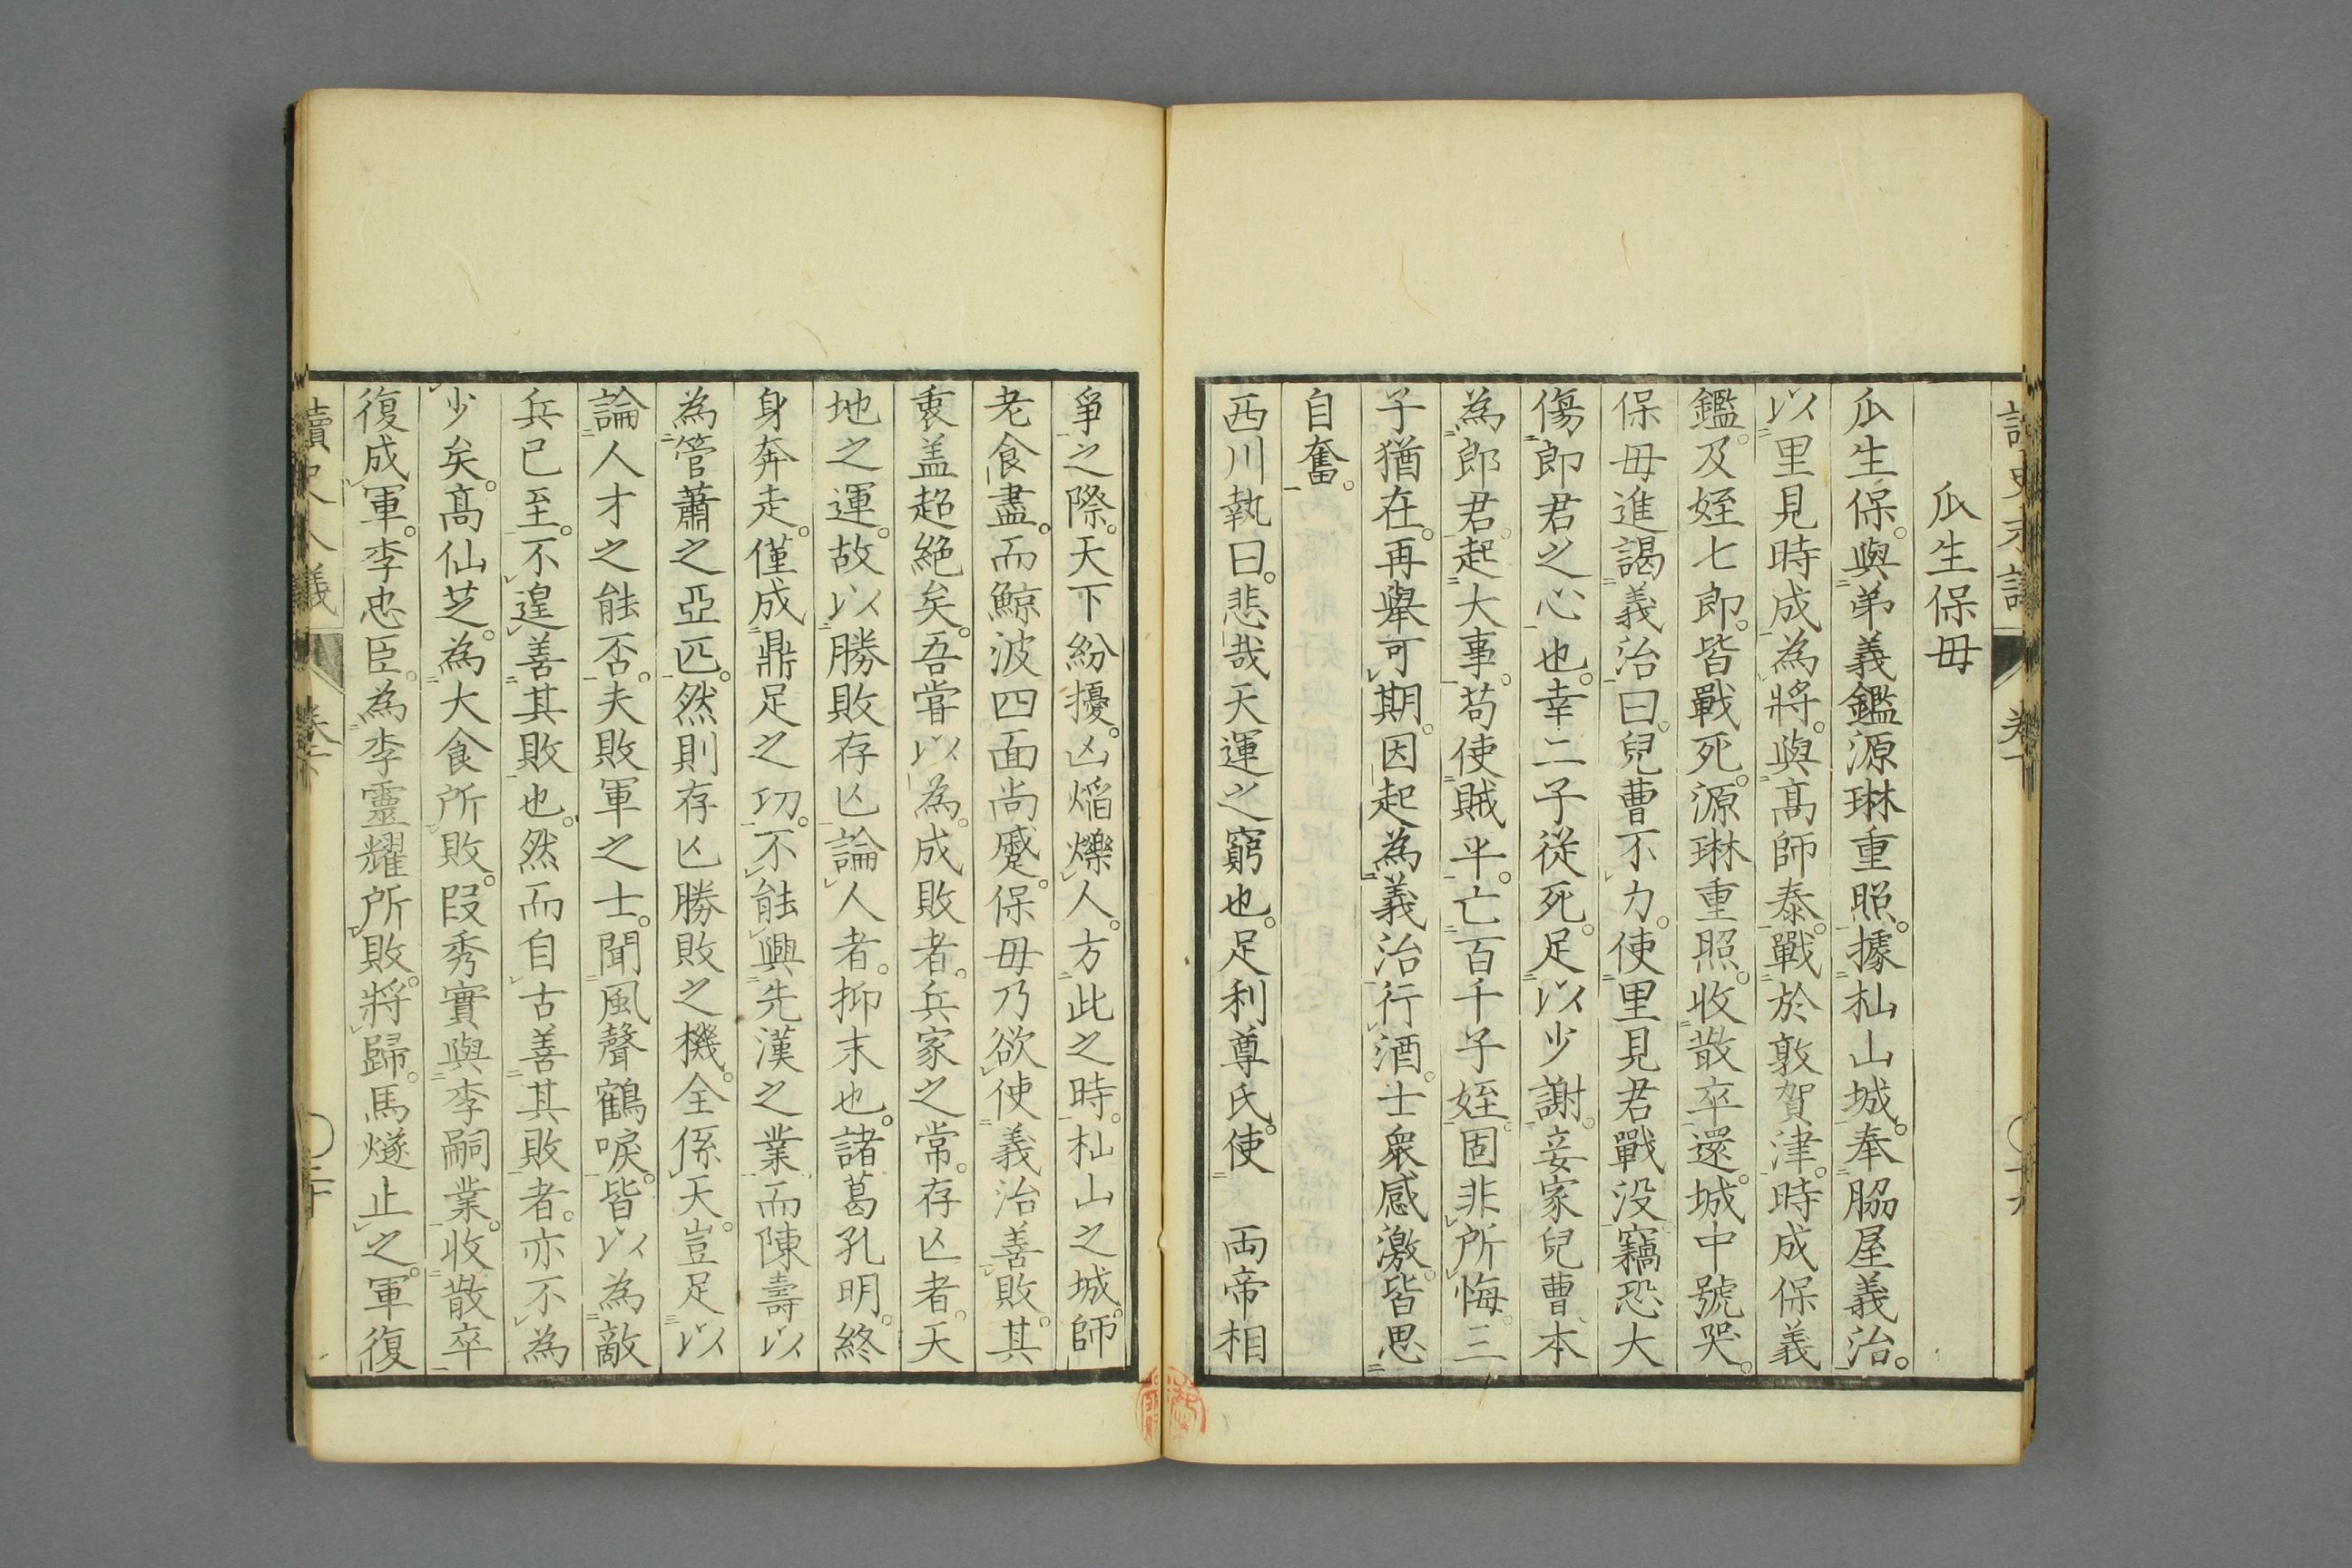 瓜生保母
瓜生保。與弟義鑑源琳重照。據杣山城。奉脇屋義治。
以里見時成為將。與髙師泰。戰於敦賀津。時成保義
鑑。及姪七郎。皆戰死。源琳重照。收散卒還城。城中號哭。
保母進謁義治曰。兒曹不力。使里見君戰没。竊恐大
傷郎君之心也。幸二子從死。足以少謝。妾家兒曹本
為郎君。起大事。苟使賊平。亡百千子姪。固非所悔。三
子猶在。再舉可期。因起為義治行酒。士衆感激。皆思
自奮。
西川執曰。悲哉天運之窮也。足利尊氏。使 両帝相
爭之際。天下紛擾。凶熖爍人。方此之時。杣山之城。師
老食盡。而鯨波四面尚蹙。保母乃欲使義治善敗。其
衷盖超絶矣。吾嘗以為。成敗者。兵家之常。存亾者。天
地之運。故以勝敗存亾論人者。抑末也。諸葛孔明。終
身奔走。僅成鼎足之功。不能興先漢之業。而陳壽以
為管蕭之亞匹。然則存亾勝敗之機。全係天。豈足以
論人才之能否。夫敗軍之士。聞風聲鶴唳。皆以為敵
兵已至。不遑善其敗也。然而自古善其敗者。亦不為
少矣。髙仙芝。為大食所敗。段秀實與李嗣業。收散卒
復成軍。李忠臣。為李靈耀所敗。將歸。馬燧止之。軍復